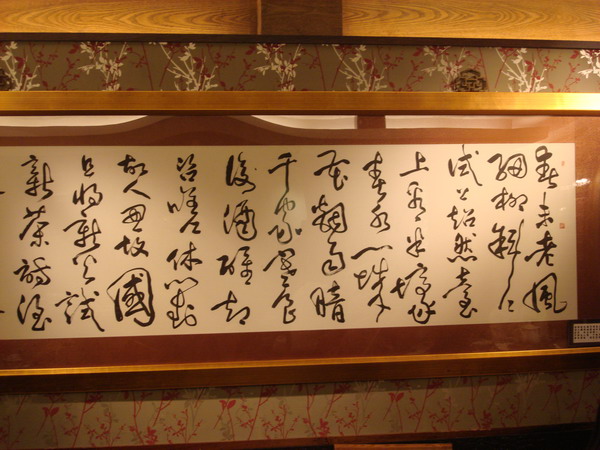 春未老風
細柳斜斜
試上超然臺
上看半壕
春水一城
花烟雨暗
千家寒食
後酒醒却
咨嗟休對
故人思故國
且將新火試
新茶詩酒